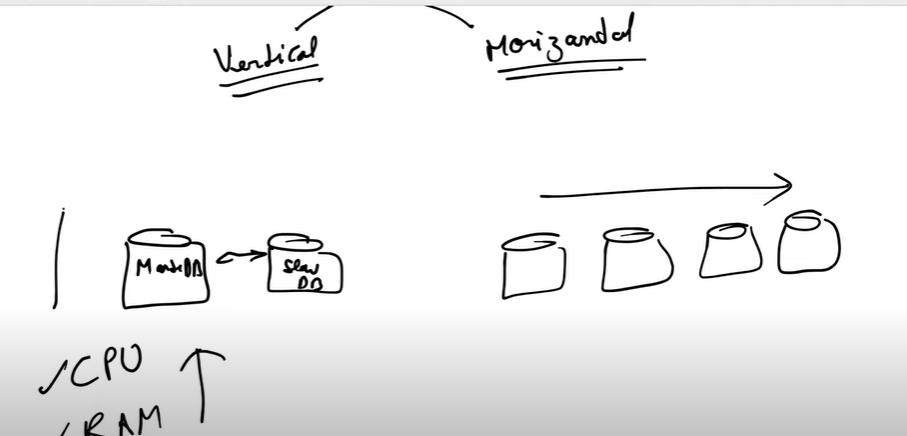 Vertical
Horizandal
Master DB
Slav
DB
CPU
RAM